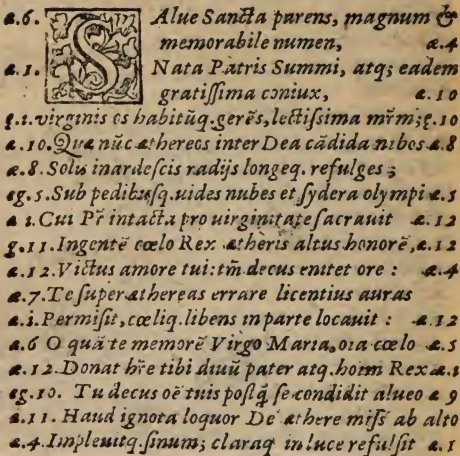 a.6. SAlue Sancta parens, magnum &
memorabile numen, a.4
a.1. Nata Patris Summi, atq; eadem
gratissima coniux, a.10
g.1.virginis os habitũq.gerẽs, lectissima mr̃m;g.10
a.10.Quæ nũc æthereos inter Dea cãdida nibos a.8
a.8.Solis inardescis radijs longeq. refulges;
eg.5.Sub pedibusq.uides nubes et sydera olympi e.5
a 1.Cui Pr̃ intacta pro uirginitate sacrauit a.12
g.11.Ingentẽ cœlo Rex ætheris altus honorẽ, a.12
a.12.Victus amore tui: tm̃ decus enitet ore : a.4
a.7.Te super æthereas errare licentius auras
a.i.Permisit, cœliq.libens in parte locauit : a.12
a.6 O quã te memorẽ Virgo Maria, oĩa cœlo a.5
a.12.Donat hr̃e tibi diuũ pater atq.hoim Rex a.1
eg.10. Tu decus oẽ tuis postq̃ se condidit alueo a 9
a.11. Haud ignota loquor De æthere miss ab alto
a.4.Impleuitq.sinum; claraq in luce refulsit a.1